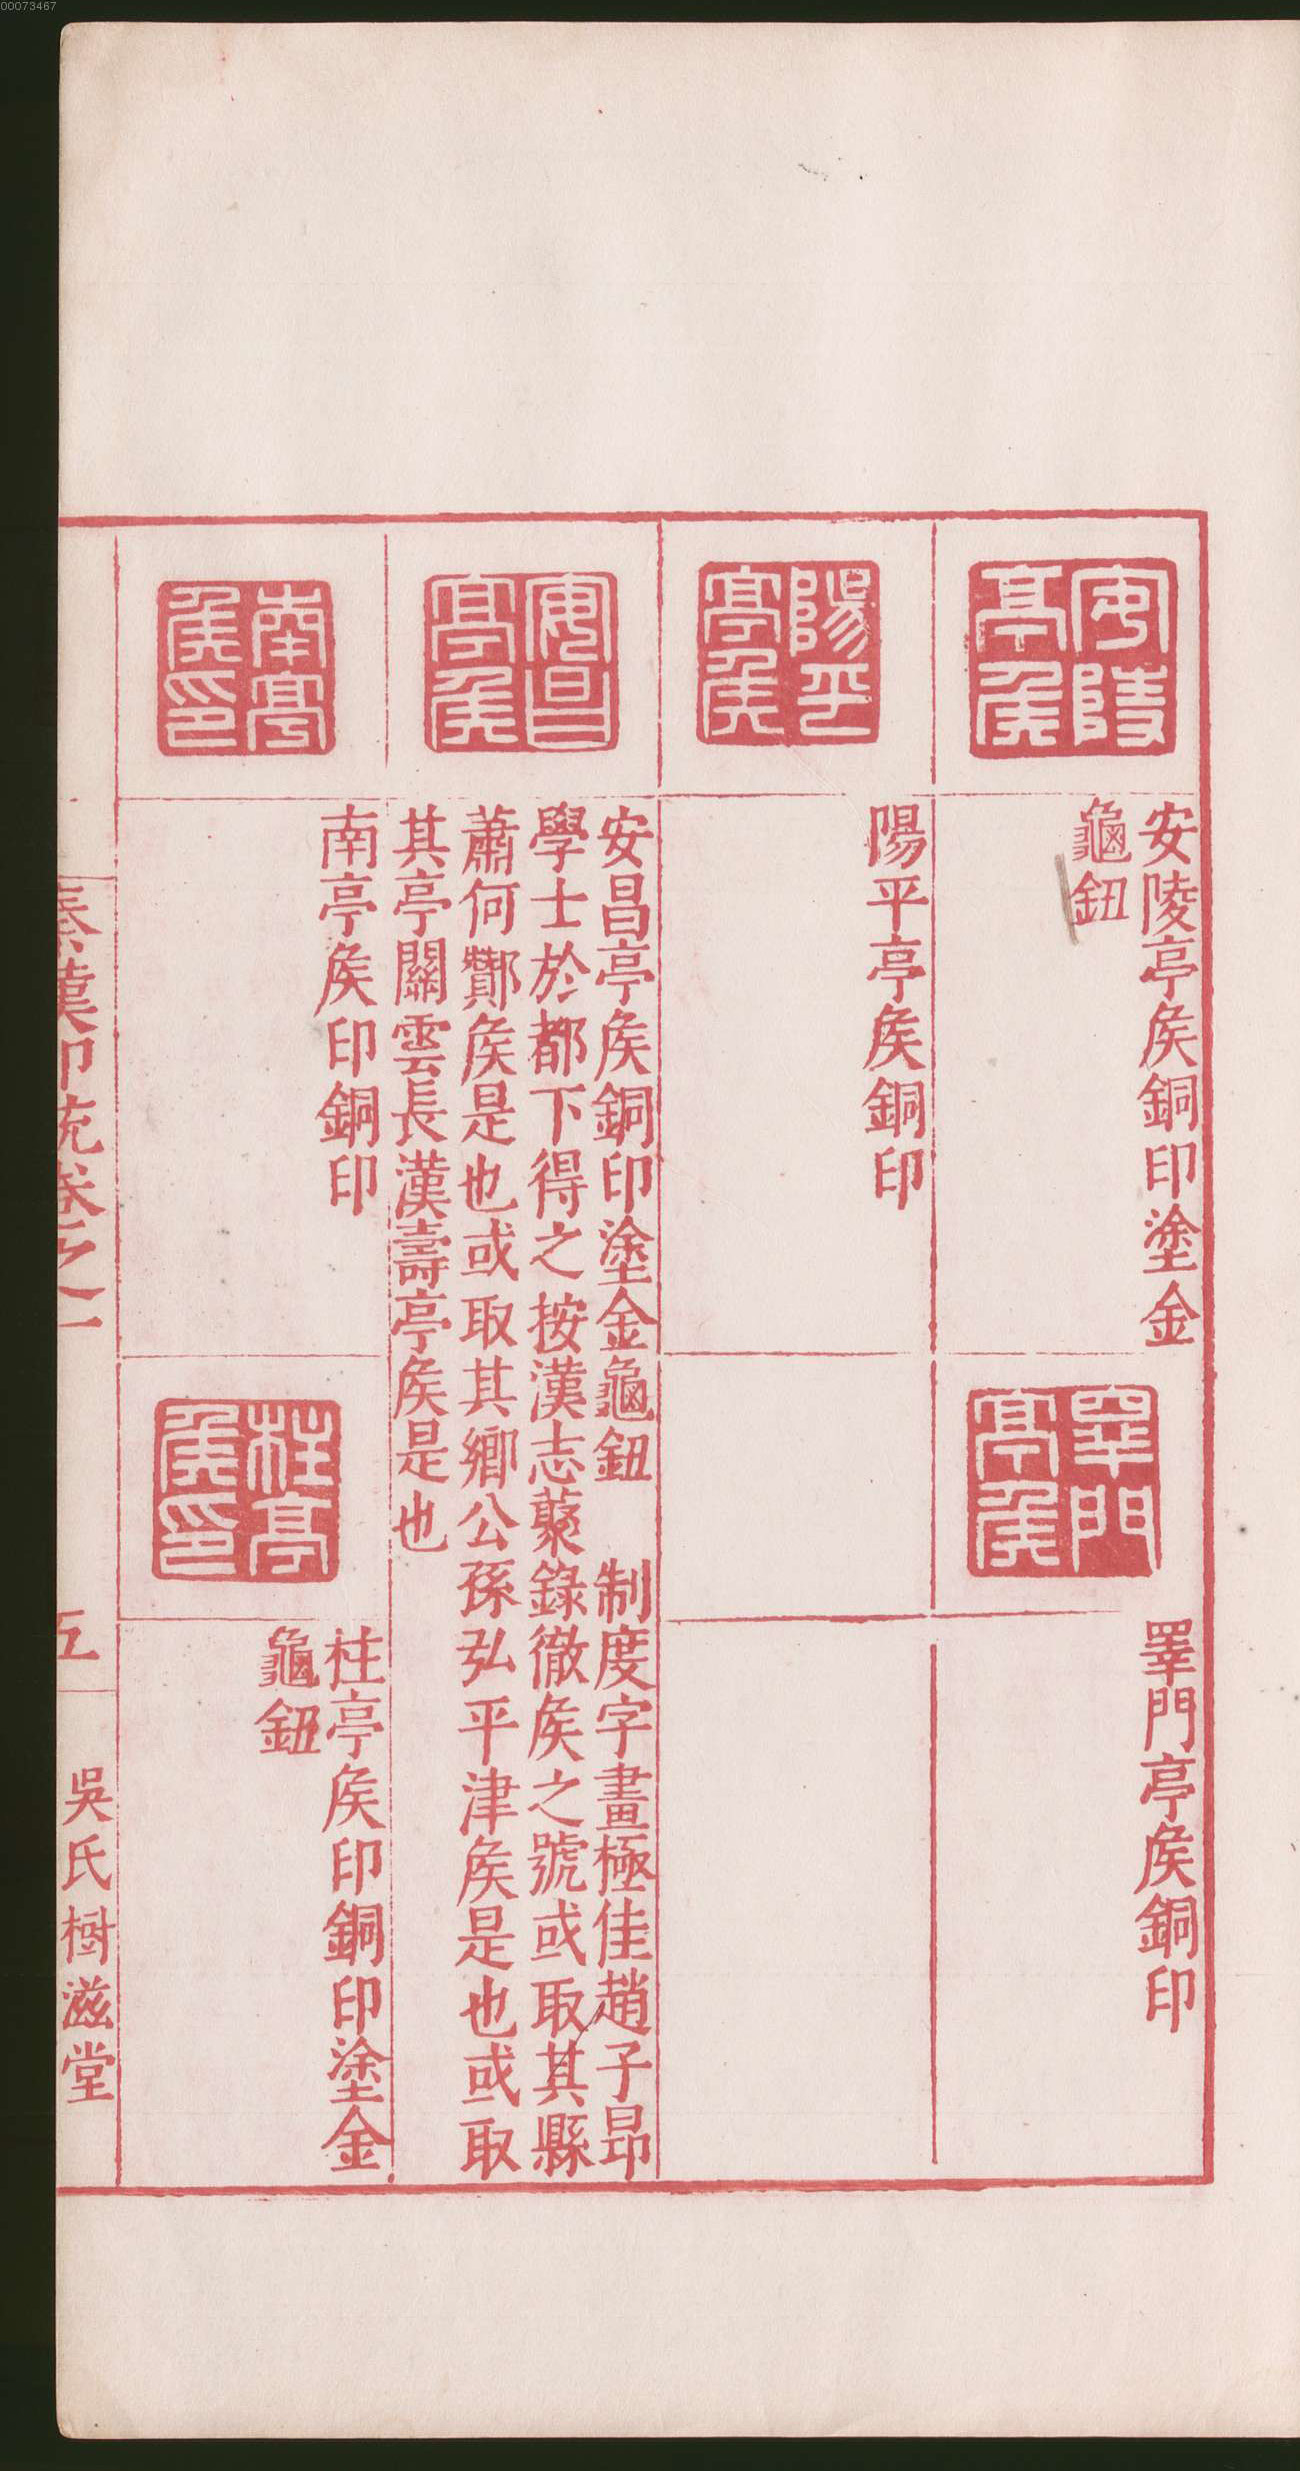 00073467
安陵
亭矦
安陵亭矦銅印塗金
龜鈕
罼門
亭矦
罼門亭矦銅印
陽平
亭矦
陽平亭矦銅印
安昌
亭矦
安昌亭矦銅印塗金龜鈕　制度字畫極佳趙子昂
學士於都下得之按漢志蘂錄徹矦之號或取其縣
蕭何酇矦是也或取其鄉公孫弘平津矦是也或取
其亭關雲長漢壽亭矦是也
南亭
矦印
南亭矦印銅印
柱亭
矦印
柱亭矦印銅印塗金
龜鈕
秦漢印統卷之一
五
吳氏樹滋堂